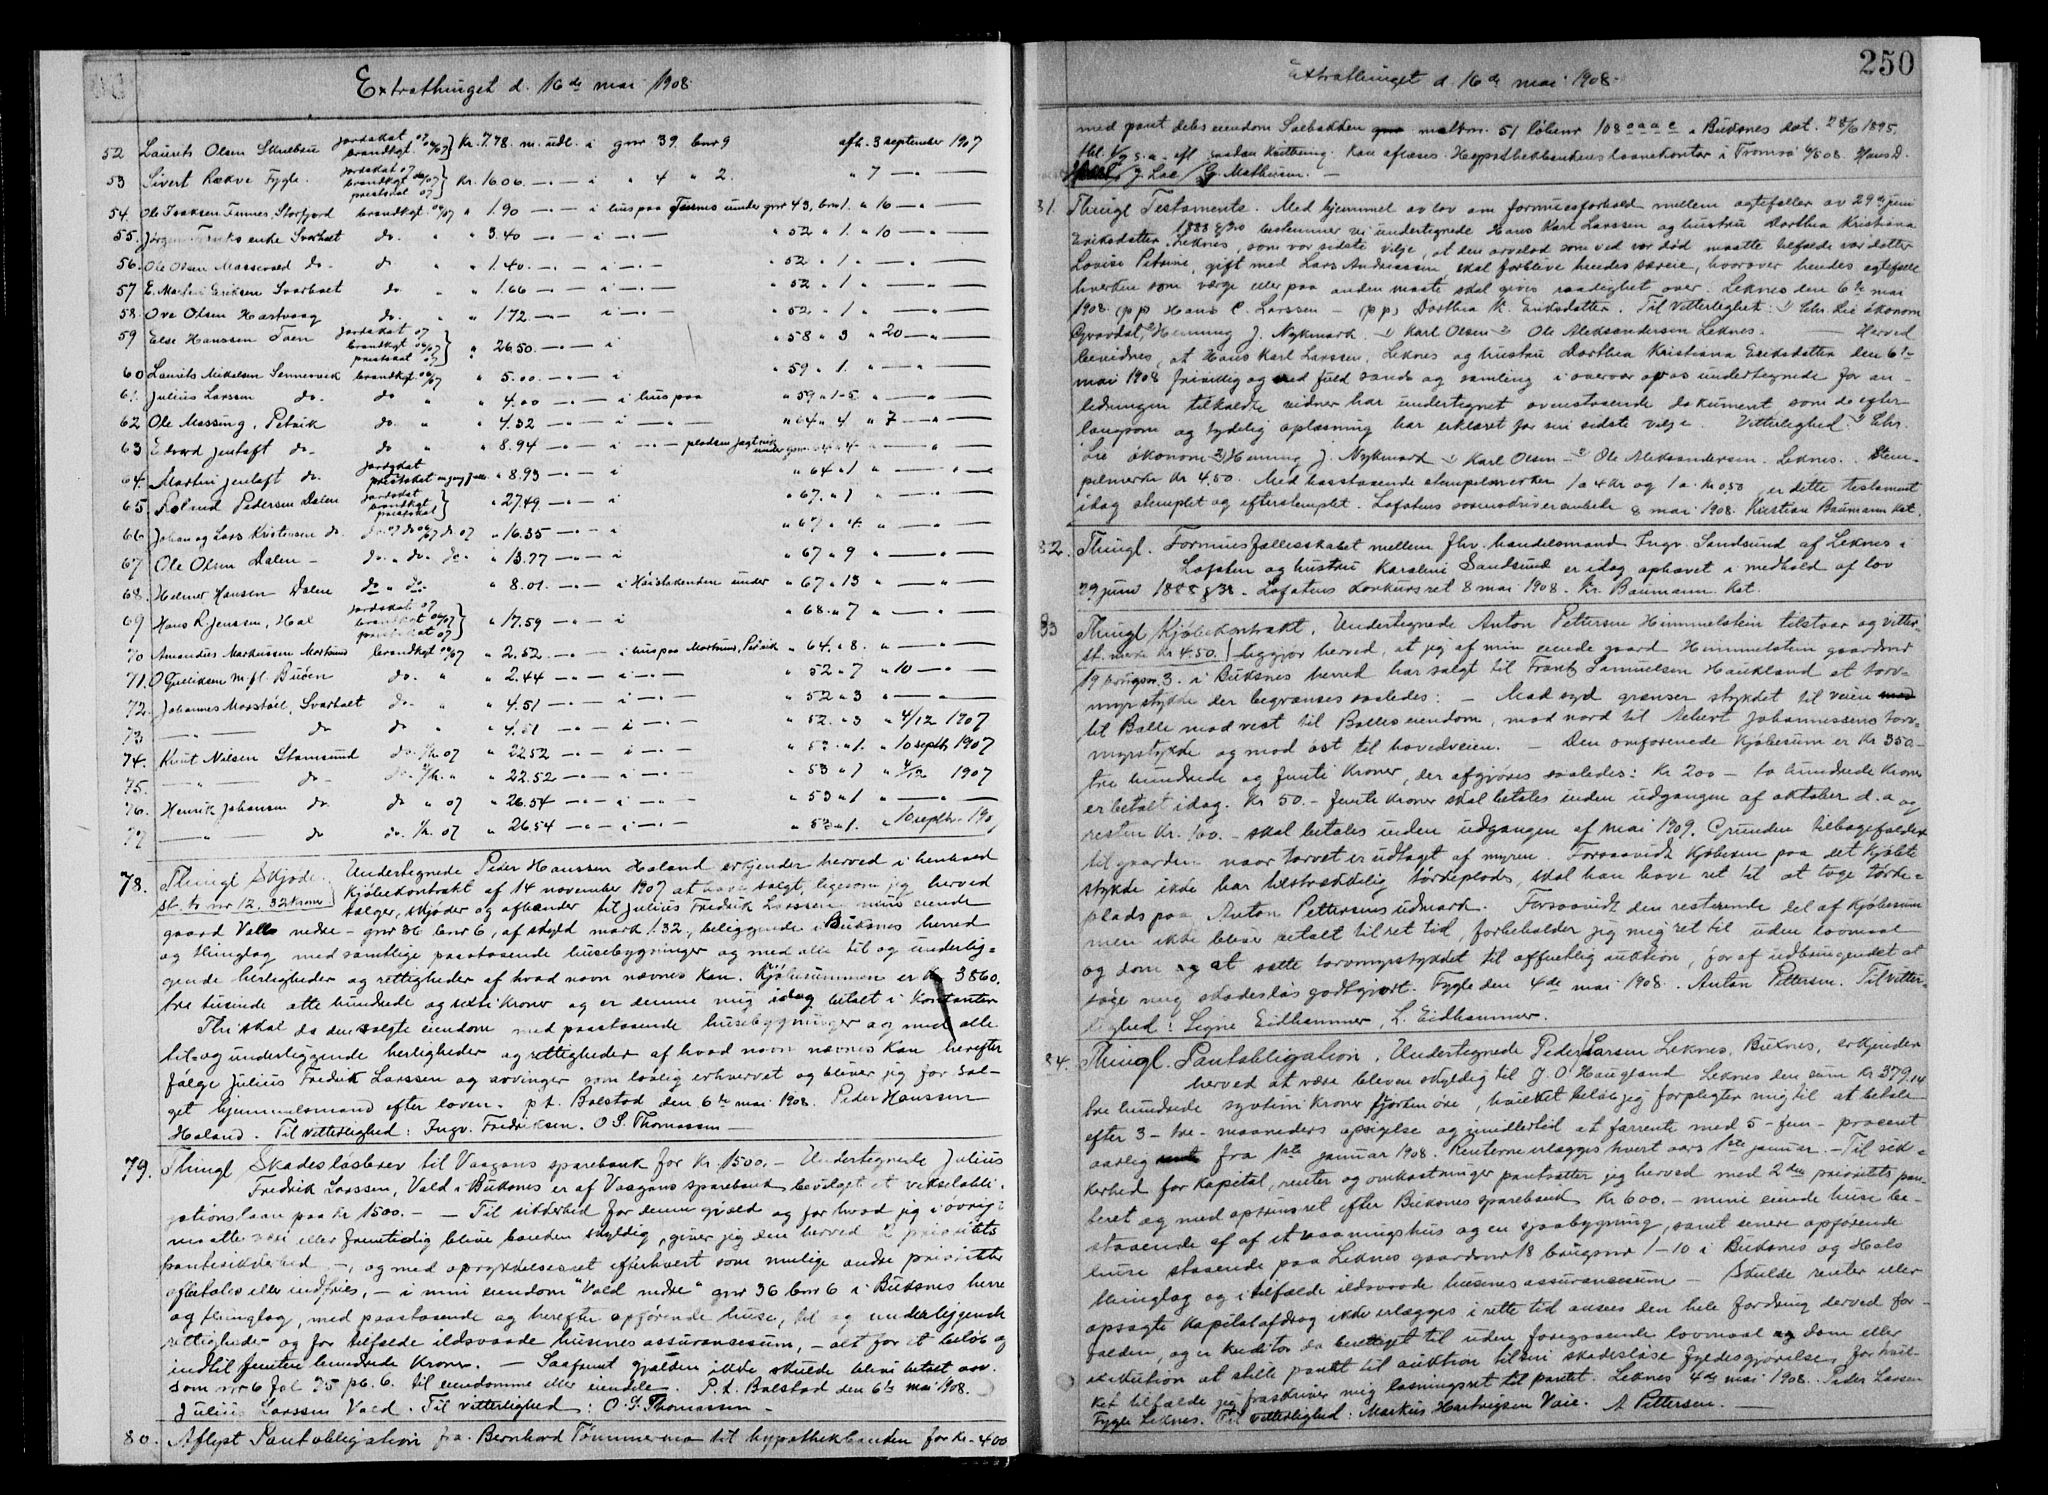 Extrathinget d. 16de mai 1908
52 Laurits Olsen Skulbru Jordskat 07 brandkgt. 06/07 Kr. 7.78 m. udl. i gnr 39 bnr 9 afh. 3 september 1907
53 Sivert Rækve Fygle. Jordskat 07 brandkgt 06/07 præstskat 07 Kr. 16.06 — " — i " 4 " 2. " 7 — " —
54. Ole Isaksen Finnes, Storfjord brandkgt. 06/07 " 1.90 — " — i hus paa Finnes under gnr 43, bnr 1. " 10 — " —
55. Jørgen enke Svarholt do. " " 3.40 — " — i — " — " 52 " 1. " 10 — " —
56. Ole Olsen do. do " " 1.40. — " — i — " — " 52 " 1 " — " —
57 E. Martin Eriksen Svarholt do " " 1.66 — " — i — " — " 52 " 1 " — " —
58. Ove Olsen Hartvaag do. " " 1.72 — " — i — " — " 52 " 1 " — " —
59 Else Hanssen Toen Jordskat 07 brandkgt 06/07 præstskat 07 " 26.50. — " — i " 58 " 3 " 20 — " —
60 Laurits Mikalsen Sennesvik brandkgt 06/07 " 5.00. — " — i " 59 " 1. " — " —
61. Julius Larssen do. do " " 4.00 — " — i hus paa " 59 " 1-5 " — " —
62 Ole Massing, Petvik do. " " 4.32 — " — i — " — " 64 " 4 " 7 — " —
63 Edvard Jentoft do. do " " 8.94 — " — i — " — pladsen Jagtvik under gnr 64 " 4 " — " —
64. Martin Jentoft do. Jordskat præstskat " 8.93 — " — i " 64 " 1 " — " —
65. Rolund Pedersen Dalen Jordskat brandkgt præstskat " 27.49. — " — i " 67. " 1 " — " —
66 Johan og Lars Kristensen do. do 07 do 06/07 do 07 " 16.35 — " — i " 67 " 4. " — " —
67 Ole Olsen Dalen — do. " do. " do. " 13.77 — " — i " 67 " 9 " — " —
68. Helmer Hansen Dalen do " do. " 8.01. — " — i under " 67 " 13 " — " —
69 Hans R. Jenssen, Hol Jordskat 07 brandskat 06/07 præstskat 07 " 17.59 — " — i " 68 " 7 " — " —
70 Amandus Markussen Mortsund brandkgt 06/07 " 2.52. — " — i hus paa Mortsund, Petvik " 64. " 8. " — " —
71. O Gulliksen m. fl. Buøen do. " " 2.44 — " — i — " — " 52 " 7 " 10 — " —
72. Johannes Morstøil, Svarholt do " " 4.51 — " — i — " — " 52 " 3 " — " —
73 — " — do do " " 4.51 — " — i — " — " 52. " 3 " 4/12 1907
74. Knut Nilsen Stamsund do. 1/h. 07 " 22.52 — " — i — " — " 53 " 1. " 10 septbr 1907
75. — " — do. do. 2/h. " " 22.52 — " — i — " — " 53 " 1 " 4/12 1907
76. Henrik Johansen do do " 07 " 26.54 — " — i — " — " 53 " 1 " — " —
77 — " — do do. 1/h. 07 " 26.54 — " — i — " — " 53 " 1. " 10 septbr. 190
78. Thingl Skjøde. Undertegnede Peder Hanssen Holand erkjender herved i henhold
st. b. nr 12. 32 kroner Kjøbekontrakt af 14 november 1907 at have solgt, ligesom jeg herved
sælger, skjøder og afhænder til Julius Fredrik Larssen min eiende
gaard Valle nedre – gnr 36 bnr 6, af skyld mark 1.32, beliggende i Buksnes herred
og thinglag med samtlige paastaaende husebygninger og med alle til og underlig-
gende herligheder og rettigheder af hvad navn nævnes kan. Kjøbesummen er kr 3860,
tre tusinde otte hundrede og sexti kroner og er denne mig idag betalt i Kontanter
Thi skal da den solgte eiendom med paastaaende husebygninger og med alle
til- og underliggende herligheder og rettigheder af hvad navn nævnes kan herefter
følge Julius Fredrik Larssen og arvinger som lovlig erhvervet og bliver jeg for sal-
get hjemmelsmand efter loven. p.t. Balstad den 6te mai 1908. Peder Hanssen
Holand. Til vitterlighed: Ingv. Fredriksen. O S. Thomassen —
79. Thingl Skadesløsbrev til Vaagans sparebank for Kr. 1500. – Undertegnede Julius
Fredrik Larssen, Vold i Buksnes er af Vaagans sparebank bevilget et vekselobli-
gationslaan paa Kr 1500. – – Til sikkerhed for denne gjæld og for hvad jeg i øvrigt
maatte være eller fremtidig blive banken skyldig, giver jeg den herved 2 prioritets
pantesikkerhed –, og med oprykkelsesret efterhvert som mulige andre prioriteter
afbetales eller indfries, – i min eiendom "Vold nedre" gnr 36 bnr 6 i Buksnes herre
og thinglag, med paastaaende og herefter opførende huse, til og underliggende
rettigheder og for tilfælde ildsvaade husenes assurancesum, – alt for et beløb af
indtil femten hundrede kroner. – Saafremt gjælden ikke skulde blive betalt osv.
som nr 6 fol 75 pb. 6. til eiendomme eller eiendele. P. t. Balstad den 6te mai 1908.
Julius Larssen Vold. Til vitterlighed: O. S. Thomassen –
80. Aflyst Pantobligation fra Bernhard Tømmernes til hypothekbanken for kr. 400

250
Extrathinget d. 16de mai 1908.
med pant i debs eiendom Solbakken matrnr. 51 løbenr 108 i Buksnes dat. 28/6 1895,
thl. 1/7 s.a. efl. saadan kvittering. Kan aflæses. Hypothekbankens laanekontor i Tromsø 4/5 08. Hans D.
J. Lae / G. Mathiesen. —
81. Thingl Testamente. Med hjemmel av lov om formuesforhold mellem egtefæller av 29 juni
1888 § 20 bestemmer vi undertegnede Hans Karl Larssen og hustru Dorthea Kristiana
Eriksdatter, Leknes, som vor sidste vilje, at den arvelod som ved vor død maatte tilfalde vor datter
Lovise Petrine, gift med Lars Andreassen, skal forblive hendes særeie, hvorover hendes egtefælle
hverken som værge eller paa anden maate skal gives raadighet over. Leknes den 6te mai
1908. (p p) Hans C. Larssen – (p p) Dorthea K. Eriksdatter. Til Vitterlighet: 1) Chr. Lie økonom
Gravdal, 2) Henning J. Nykmark – 1) Karl Olsen – 2) Ole Aleksandersen Leknes. — Herved
bevidnes, at Hans Karl Larssen, Leknes og hustru Dorthea Kristiana Eriksdatter den 6te
mai 1908 frivillig og ved fuld sands og samling i overvær af os undertegnede for an-
ledningen tilkaldte vidner har undertegnet ovenstaaende dokument som de efter
langsom og tydelig oplæsning har erklæret for sin sidste vilje. Vitterlighed: 1) Chr.
Lie økonom 2) Henning J. Nykmark – 1) Karl Olsen – 2) Ole Aleksandersen. Leknes. Stem-
pelmerke Kr 4,50. Med hosstaaende stempelmerker 1 a 4 kr og 1 a. kr 0,50 er dette testament
idag stemplet og efterstemplet. Lofotens sorenskriverembete 8 mai 1908. Kristian Baumann kst.
82. Thingl. Formuesfællesskabet mellem fhv. handelsmand Ingv. Sandsund af Leknes i
Lofoten og hustru Karoline Sandsund er idag ophævet i medhold af lov
29 juni 1888 § 38. Lofotens konkursret 8 mai 1908. Kr. Baumann. Kst.
83 Thingl Kjøbekontrakt. Undertegnede Anton Pettersen Himmelstein tilstaar og vitter-
st. merke Kr 4.50. liggjør herved, at jeg af min eiende gaard Himmelstein gaardnr
19 brugsnr. 3. i Buksnes herred har solgt til Frantz Samuelsen Haukland et torv-
myrstykke der begrænses saaledes: – Mod syd grænser stykket til veien
til Balle mod vest til Balles eiendom, mod nord til Aebert Johannessens torv-
myrstykke og mod øst til hovedveien. – Den omforenede kjøbesum er Kr 350 –
tre hundrede og femti kroner, der afgjøres saaledes: Kr 200 – to hundrede kroner
er betalt idag. Kr 50. – femti kroner skal betales inden udgangen af oktober d. a og
resten Kr. 100. – skal betales inden udgangen af mai 1909. Grunden tilbagefalder
til gaarden naar torvet er udtaget af myren. Forsaavidt kjøberen paa det kjøbte
stykke ikke har tilstrækkelig tørkeplads, skal han have ret til at tage tørke-
plads paa Anton Pettersens udmark. Forsaavidt den resterende del af kjøbesum
men ikke bliver betalt til ret tid, forbeholder jeg mig ret til uden lovmaal
og dom og at sætte torvmyrstykket til offentlig auktion, for af udbringendet at
søge mig skadesløs godtgjort. Fygle den 4de mai 1908. Anton Pettersen. Til vitter-
lighed: Signe Eidhammer, L. Eidhammer.
84. Thingl. Pantobligation. Undertegnede Peder Larsen Leknes, Buksnes, erkjender
herved at være bleven skyldig til J. O. Haugland Leknes den sum Kr 379,14
tre hundrede syvtini kroner fjorten øre, hvilket beløb jeg forpligter mig til at betale
efter 3 – tre – maaneders opsigelse og imidlertid at forrente med 5 – fem – procent
aarlig fra 1ste januar 1908. Renterne erlægges hvert aars 1ste januar. – Til sik-
kerhed for kapital, renter og omkostninger pantsætter jeg herved med 2den prioritets pan-
teret og med oprinsret efter Buksnes sparebank Kr 600. – mine eiende huse be-
staaende af af et vaaningshus og en sjaabygning, samt senere opførende
huse staaende paa Leknes gaardnr 18 brugsnr 1-10 i Buksnes og Hols
thinglag og i tilfælde ildsvaade husenes assurancesum – Skulde renter eller
opsagte kapitalafdrag ikke erlægges i rette tid ansees den hele fordring derved for-
falden, og er kreditor da berettiget til uden foregaaende lovmaal og dom eller
exekution at stille pantet til auktion til sin skadesløse fyldesgjørelse, for hvil-
ket tilfælde jeg fraskriver mig løsningsret til pantet. Leknes 4de mai 1908. Peder Larsen
Fygle Leknes. Til vitterlighed: Markus Hartvigsen Vaie. A Pettersen. —